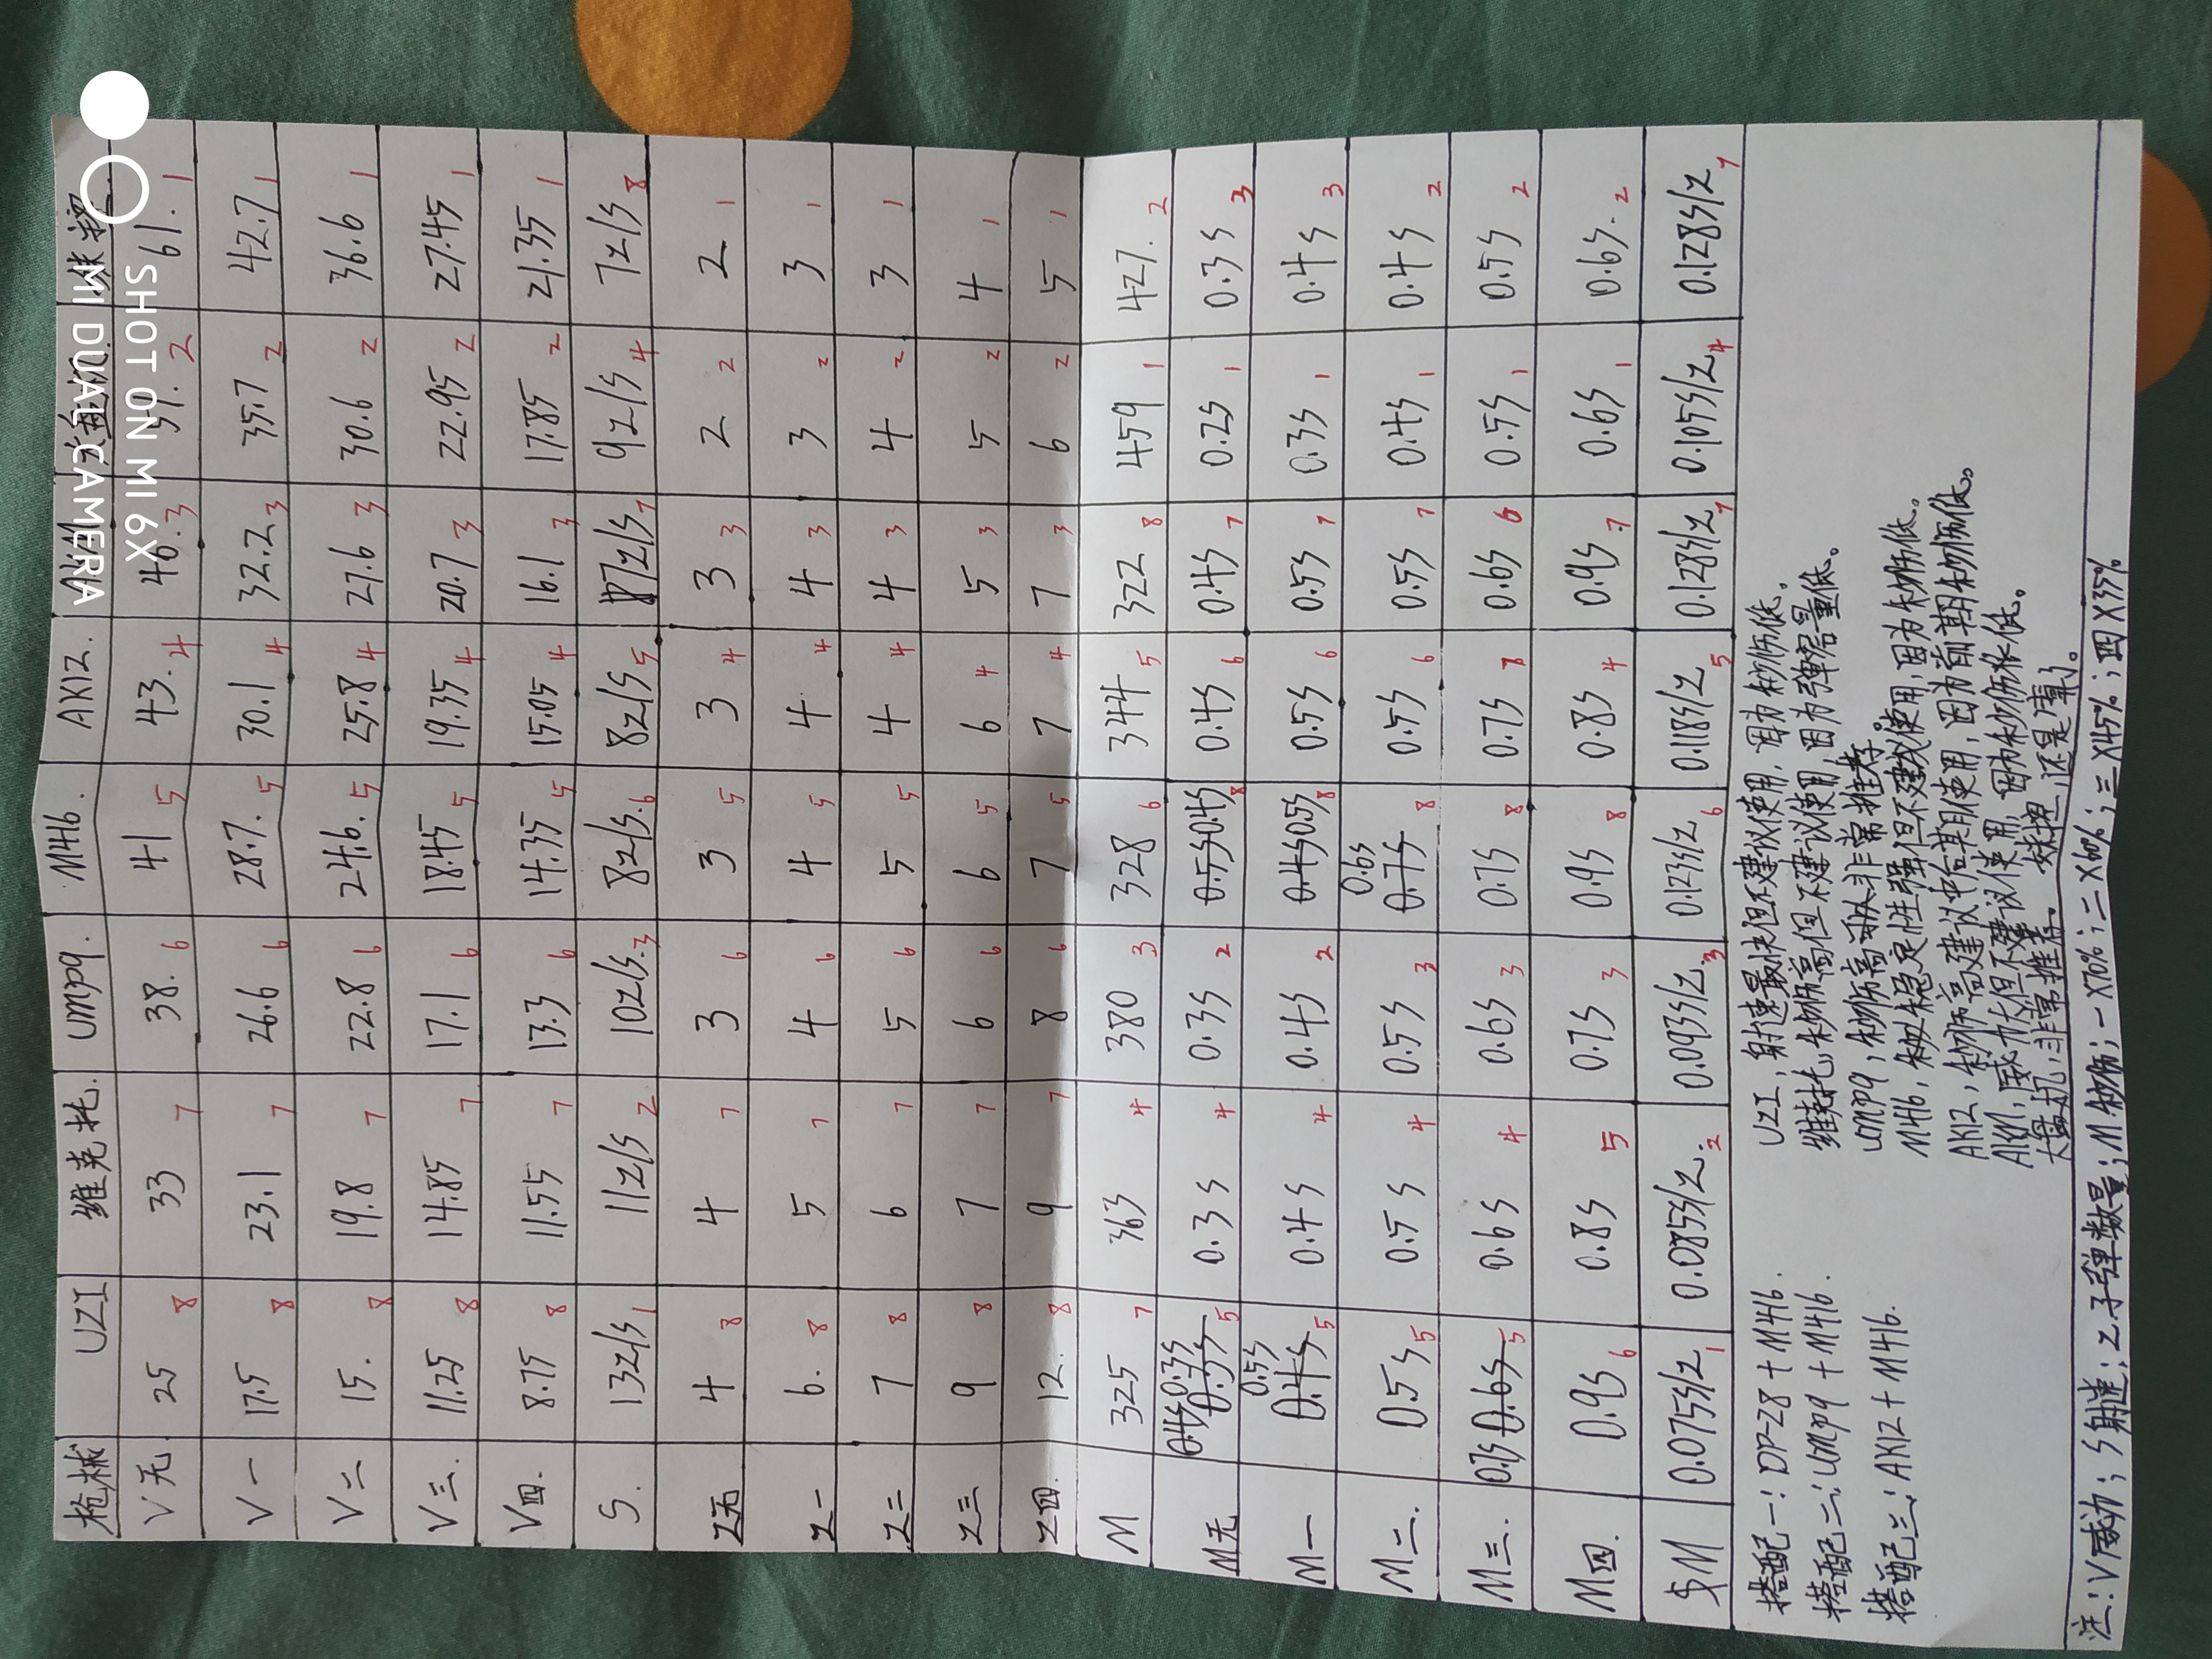 枪械 UZI 维克托. ump9. M416. AK12. AKM 大盘机.
V无 25 8 33 7 38. 6 41 5 43. 4 46. 3 51. 2 61. 1
V一 17.5 8 23.1 7 26.6 6 28.7. 5 30.1 4 32.2 3 35.7 2 42.7 1
V二 15. 8 19.8 7 22.8 6 24.6. 5 25.8 4 27.6 3 30.6 2 36.6 1
V三. 11.25 8 14.85 7 17.1 6 18.45 5 19.35 4 20.7 3 22.95 2 27.45 1
V四. 8.75 8 11.55 7 13.3 6 14.35 5 15.05 4 16.1 3 17.85 2 21.35 1
S. 13z/s 1 11z/s 2 10z/s. 3 8z/s. 6 8z/s 5 7z/s 7 9z/s 4 7z/s 8
Z无 4 8 4 7 3 6 3 5 3 4 3 3 2 2 2 1
Z一 6. 8 5 7 4 6 4 5 4 4 4 3 3 2 3 1
Z二 7 8 6 7 5 6 5 5 4 4 4 3 4 2 3 1
Z三 9 8 7 7 6 6 6 5 6 4 5 3 5 2 4 1
Z四. 12. 8 9 7 8 6 7 5 7 4 7 3 6 2 5 1
M 325 7 363 4 380 3 328 6 344 5 322 8 459 1 427. 2
M无 0.3s 5 0.3s 4 0.3s 2 0.5s 0.4s 8 0.4s 6 0.4s 7 0.2s 1 0.3s 3
M一 0.5s 0.4s 5 0.4s 4 0.4s 2 0.4s 0.5s 8 0.5s 6 0.5s 7 0.3s 1 0.4s 3
M二. 0.5s 5 0.5s 4 0.5s 3 0.6s 0.7s 8 0.5s 6 0.5s 7 0.4s 1 0.4s 2
M三. 0.7s 0.6s 5 0.6s 4 0.6s 3 0.7s 8 0.7s 7 0.6s 6 0.5s 1 0.5s 2
M四. 0.9s 6 0.8s 5 0.7s 3 0.9s 8 0.8s 4 0.9s 7 0.6s 1 0.6s. 2
$M 0.075s/z 1 0.085s/z. 2 0.093s/z. 3 0.123s/z. 6 0.118s/z 5 0.128s/z 7 0.105s/z 4 0.128s/z 7
搭配一:DP-28 + M416.
搭配二:ump9 + M416.
搭配三:AK12 + M416.
UZI,射速最快但不建议使用,因为秒伤低。
维克托,秒伤高但不建议使用,因为弹容量低。
ump9,秒伤高 非常推荐。
M416, 稳定性强但不建议使用,因为秒伤低。
AK12,秒伤高建议中后期使用,因为前期秒伤低。
AKM,威力大但不建议使用,因为秒伤很低。
大盘机,非常推荐。 妹控,还是算了。
注:V威力;S射速;Z子弹数量;M秒伤;一X70%;二X60%;三X45%;四X35%
SHOT ON MI 6X
MI DUAL CAMERA